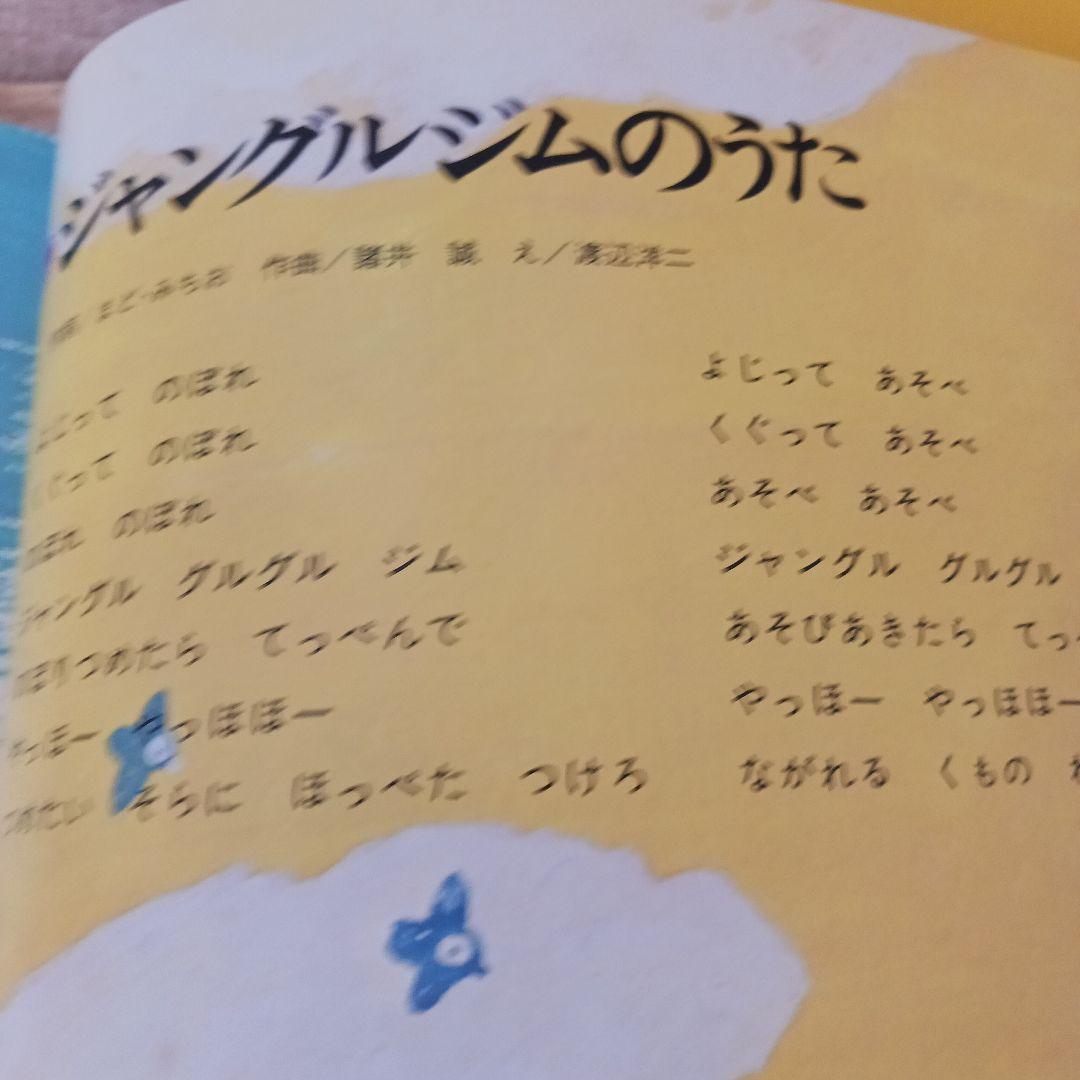 ジャングルジムのうた
作詞/まど・みちお 作曲/諸井 誠 え/渡辺洋二
よじって のぼれ
くぐって のぼれ
のぼれ のぼれ
ジャングル グルグル ジム
のぼりつめたら てっぺんで
やっほー やっほほー
つめたい そらに ほっぺた つけろ
よじって あそべ
くぐって あそべ
あそべ あそべ
ジャングル グルグル
あそびあきたら てっ
やっほー やっほほー
ながれる くもの